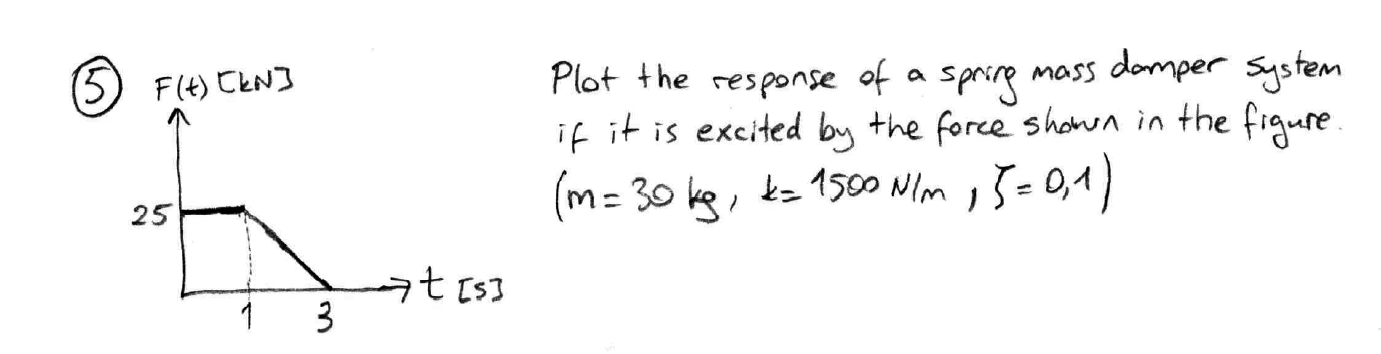 5 F(t) [kN]
Plot the response of a spring mass damper system
if it is excited by the force shown in the figure.
(m = 30 kg, k = 1500 N/m, ζ = 0,1)
25
t [s]
1 3